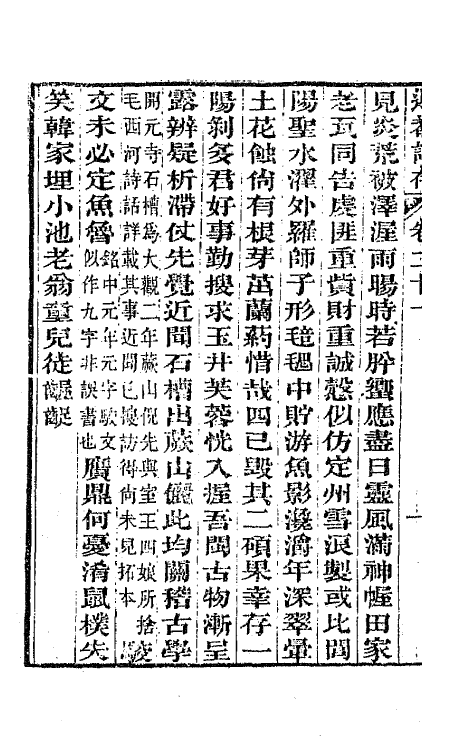 見炎荒被澤渥雨暘時若肸蠁應盡曰靈風滿神幄田家
老瓦同告虔匪重貲財重誠慤似仿定州雪浪製或比閩
陽聖水濯外羅師子形𣯶𣰆中貯游魚影瀺灂年深翠暈
土花蝕尙有根芽茁蘭葯惜哉四已毀其二碩果幸存一
陽剝多君好事勤搜求玉井芙蓉恍入握吾閩古物漸呈
露辨疑析滯仗先覺近聞石槽出蕨山儷此均關稽古學
開元寺石槽爲大觀二年蕨山倪先與室王四娘所捨
毛西河詩話詳載其事近聞已搜訪得尙未見拓本
文未必定魚魯
銘中元年元字駁文
似作九字非誤書也
贗鼎何憂淆鼠樸先
笑韓家埋小池老翁童兒徒齷齪